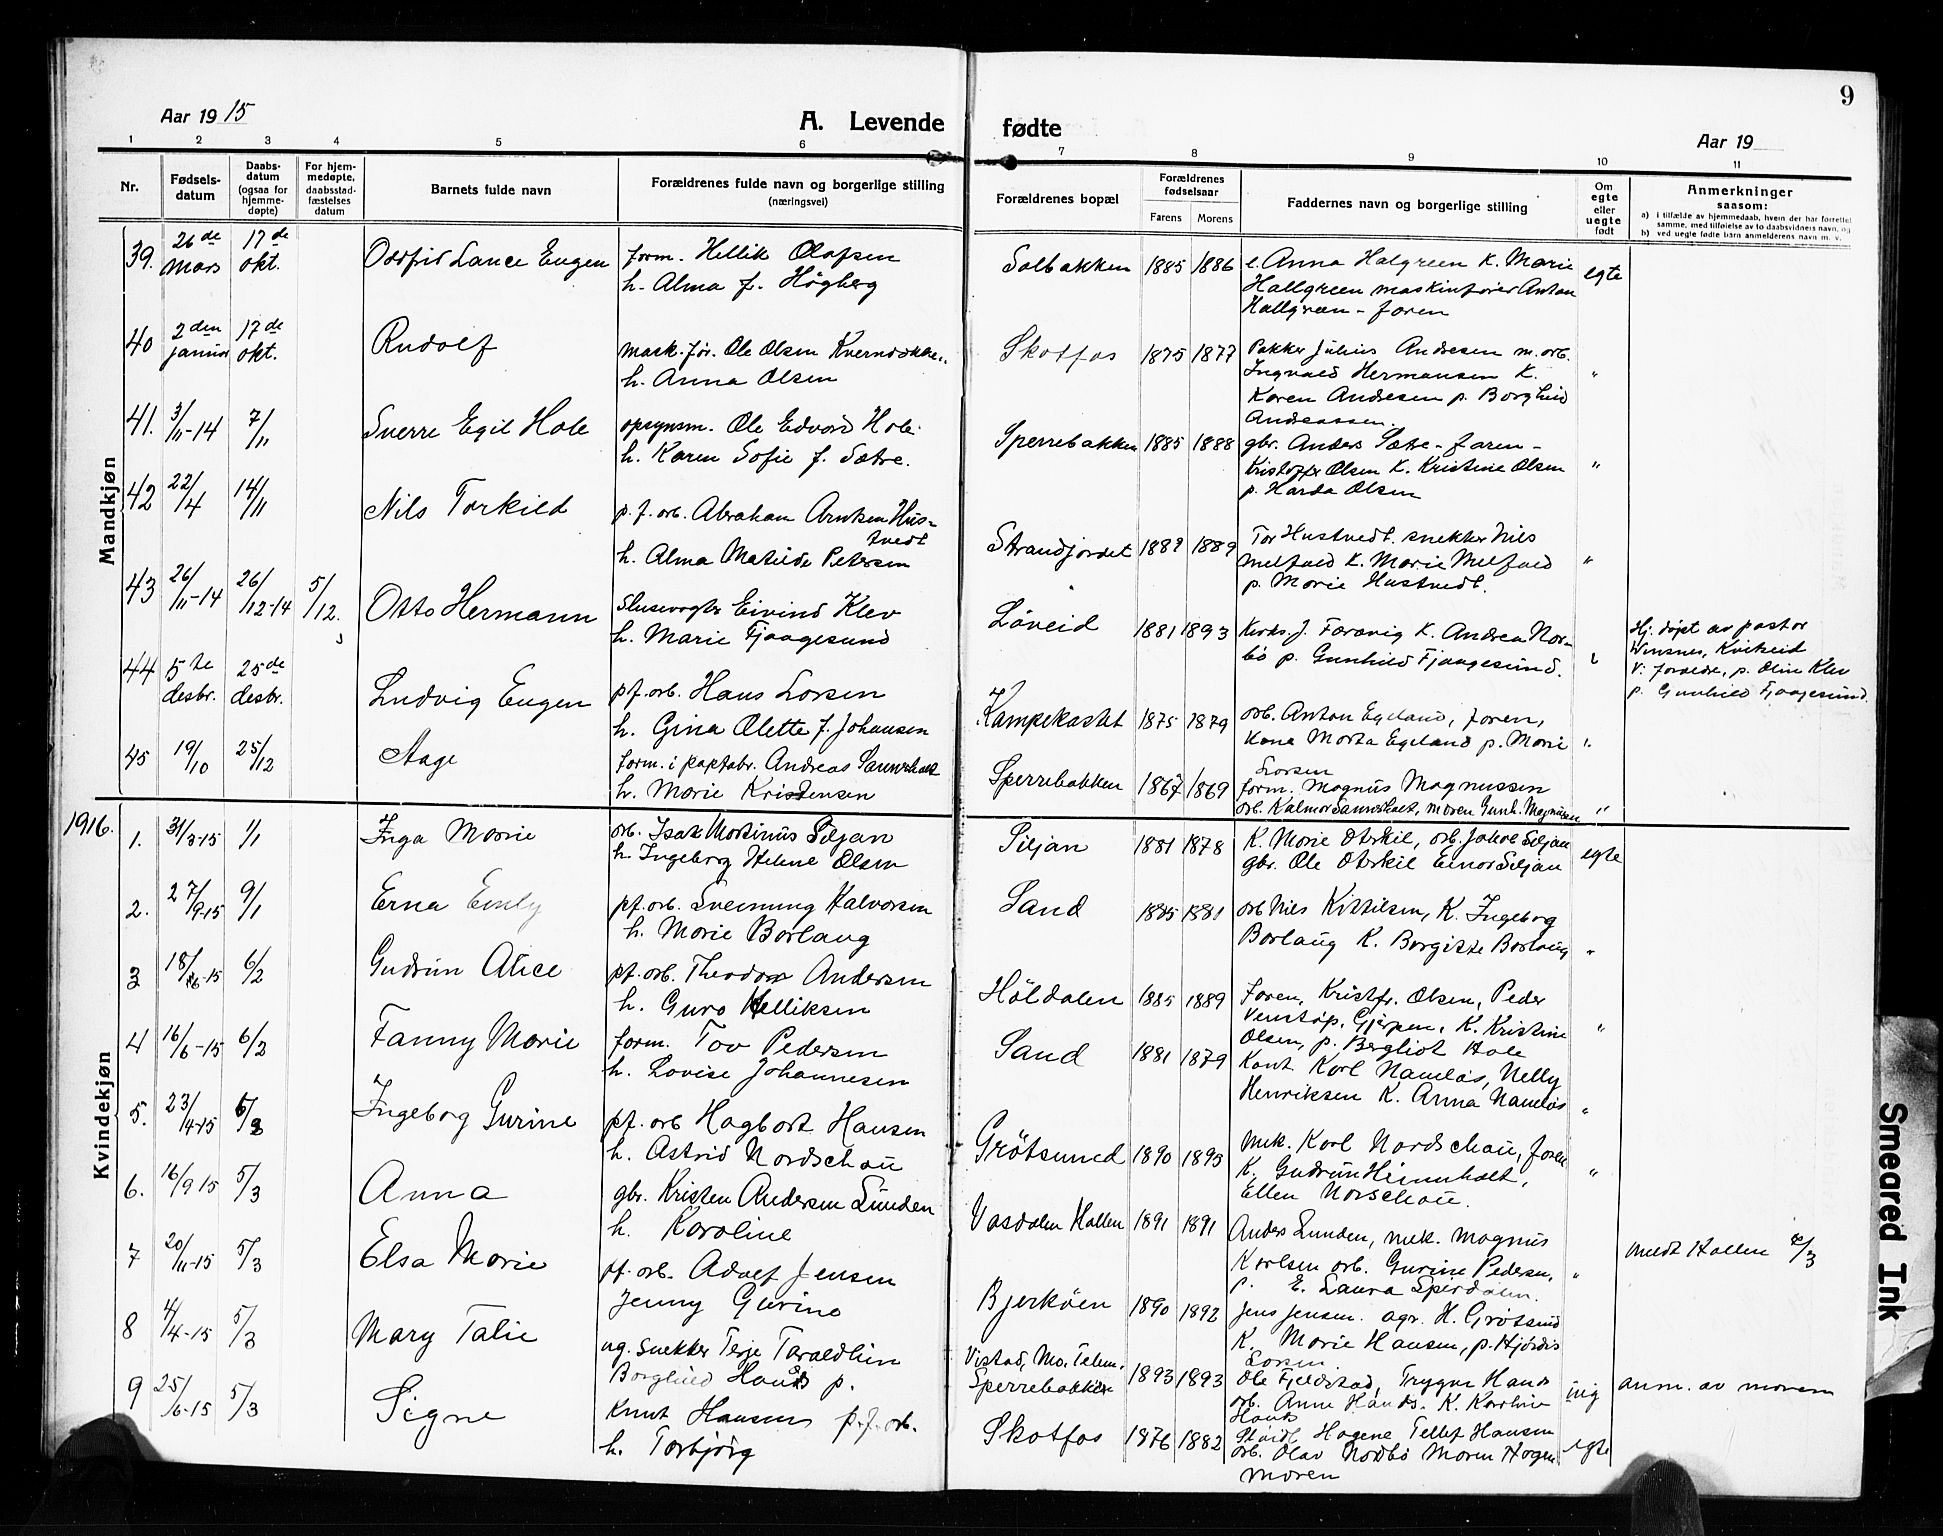 9
Aar 1915
A. Levende fødte
Aar 19
1 2 3 4 5 6 7 8 9 10 11
Nr.
Fødsels-
datum
Daabs-
datum
(ogsaa for
hjemme-
døpte)
For hjem-
medøpte,
daabsstad-
fæstelses
datum
Barnets fulde navn
Forældrenes fulde navn og borgerlige stilling
(næringsvei)
Forældrenes bopæl
Forældrenes
fødselsaar
Farens Morens
Faddernes navn og borgerlige stilling
Om
egte
eller
uegte
født
Anmerkninger
saasom:
a) i tilfælde av hjemmedaab, hvem der har forrettet
samme, med tilføielse av to daabsvidners navn, og
b) ved uegte fødte barn anmelderens navn m. v.
Mandkjøn
39. 26de mars 17de okt. Oddfrid Lance Eugen
form. Hellik Olafsen
h. Alma f. Høgberg
Solbakken 1885 1886
e. Anna Halgreen K. Marie
Hallgreen maskinfører Anton
Hallgreen - faren
egte
40 2den januar 17de okt. Rudolf
mask. før. Ole Olsen
h. Anna Olsen
Skotfos 1875 1877
Pakker Julius Andresen m. arb.
Ingvald Hermansen K.
Karen Andresen p. Borghild
Andreassen.
"
41. 3/11-14 7/11 Sverre Egil Hole
opsynsm. Ole Edvard Hole.
h. Karen Sofie f. Sætre.
Sperrebakken 1885 1888
gbr. Anders Sætre - faren -
Kristoffer Olsen K. Kristine Olsen
p. Harda Olsen
"
42 22/4 14/11 Nils Torkild
p. f. arb. Abraham Arntsen Hus-
tvedt
h. Alma Matilde Petersen
Strandjordet 1889 1889
Tor Hustvedt. snekker Nils
Melfald K. Marie Melfald
p. Marie Hustvedt.
"
43 26/11-14 26/12-14 5/12. Otto Hermann
Slusevogter Eivind Klev
h. Marie Fjaagesund
Løveid 1881 1893
Kirks. J. Farevig K. Andrea Nor-
bø p. Gunhild Fjaagesund.
"
Hj. døpt av pastor
Winsnes, Kviteseid
V: forældre, p. Oline Klev
p. Gunhild Fjaagesund.
44 5te desbr. 25de desbr. Ludvig Eugen
pf. arb. Hans Larsen
h. Gina Olette f. Johansen
Kampekastet 1875 1879
arb. Anton Egeland, faren,
Kona Marta Egeland p. Marie
Larsen
"
45 19/10 25/12 Aage
form. i papfabr. Andreas Sannerholt
h. Marie Kristensen
Sperrebakken 1867 1869
form. Magnus Magnussen
arb. Kalmar Sannerholt, moren Gunh. Magnussen
"
1916.
Kvindekjøn
1. 31/3-15 1/1 Inga Marie
arb. Isak Martinius Siljan
h. Ingeborg Helene Olsen
Siljan 1881 1878
K. Marie Oterkil, arb. Jakob Siljan
gbr. Ole Oterkil Einar Siljan
egte
2. 27/9-15 9/1 Erna Emly
pf. arb. Sveinung Halvorsen
h. Marie Borlaug
Sand 1885 1881
arb Nils Kittilsen, K. Ingeborg
Borlaug K. Borgitte Borlaug
"
3 18/6-15 6/2 Gudrun Alice
pf. arb. Theodor Andersen
h. Guro Helliksen
Høldalen 1885 1889
Faren, Kristfr. Olsen, Peder
Venstøp, Gjerpen, K. Kristine
Olsen, p. Bergliot Hole
"
4 16/6-15 6/2 Fanny Marie
form. Tov Pedersen
h. Lovise Johannesen
Sand 1881 1879
Kont. Karl Nauelås, Nelly
Henriksen K. Anna Nauelås
"
5. 23/4-15 5/3 Ingeborg Gurine
pf. arb Hagbart Hansen
h. Astrid Nordschau
Grøtsund 1890 1895
Mek. Karl Nordschau, faren
K. Gudrun Himmholt,
Ellen Norschau.
"
6. 16/9 15 5/3 Anna
gbr. Kristen Andersen Lunden
h. Karoline
Vasdalen Hollen 1891 1891
Anders Lunden, mek. Magnus
Karlsen arb. Gurine Pedersen,
p. E. Laura Sperdalen.
"
meldt Hollen 9/3
7 20/11-15 5/3 Elsa Marie
pf. arb. Adolf Jensen
Jenny Gurine
Bjerkøen 1890 1892
Jens Jensen. agr. H. Grøtsund
K. Marie Hansen, p. Hjørdis
Larsen
8 4/4-15 5/3 Mary Talie
ug. snekker Terje Taraldlien
Borghild Haus p.
Vistad, Mo. Telem.
Sperrebakken
1893 1893
Ole Fjeldstad, Trygve Haus
arb. Anne Hauds. K. Karoline
Haus
ug
anm. av moren
9 25/6-15 5/3 Signe
Knut Hansen p. f. arb.
h. Torbjørg
Skotfos 1876 1882
Hagene Tellef Hansen
arb. Olav Nordbø Maren Hagen
moren
egte
Smeared Ink